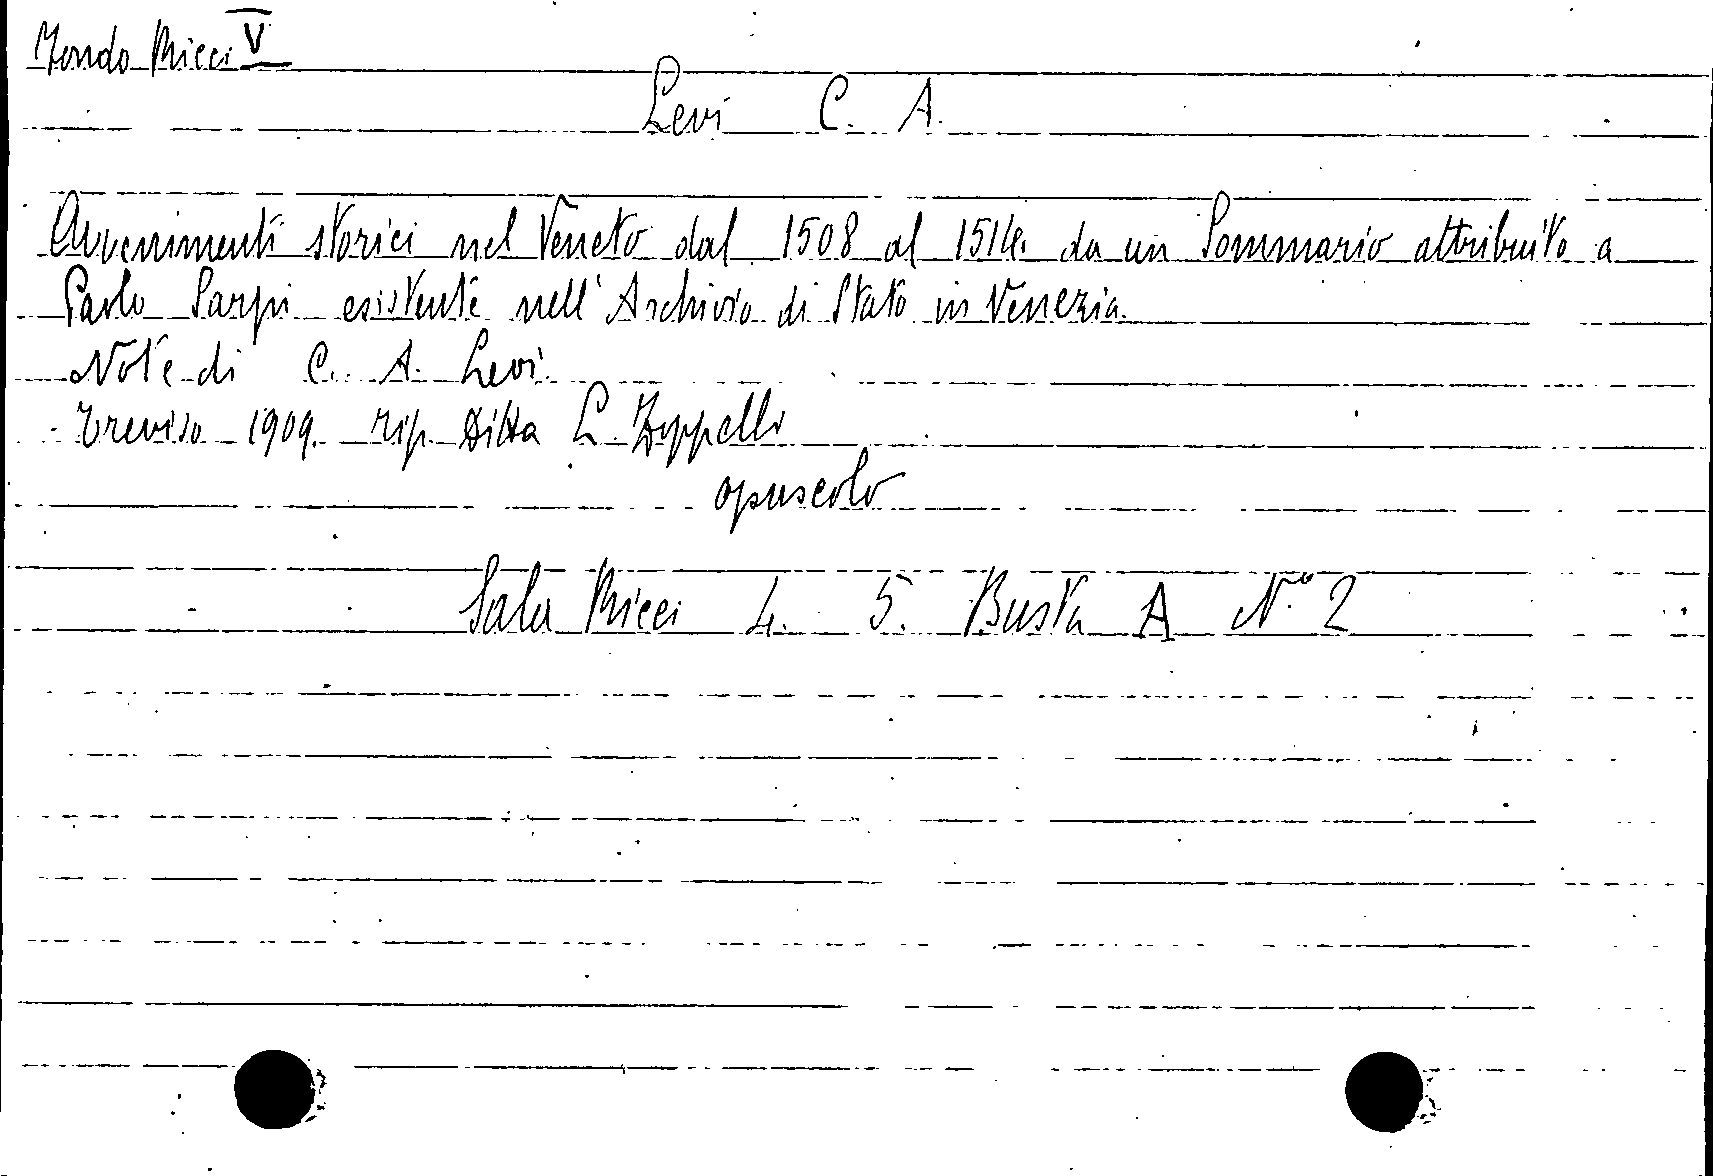 Fondo Ricci V
Levi C. A.
Avvenimenti storici nel Veneto dal 1508 al 1514. da un Sommario attribuito a
Paolo Sarpi esistente nell'Archivio di Stato in Venezia.
Note di C. A. Levi.
Treviso 1909. Tip. Ditta L. Zoppelli
opuscolo
Sala Ricci 4. 5. Busta A N.º 2